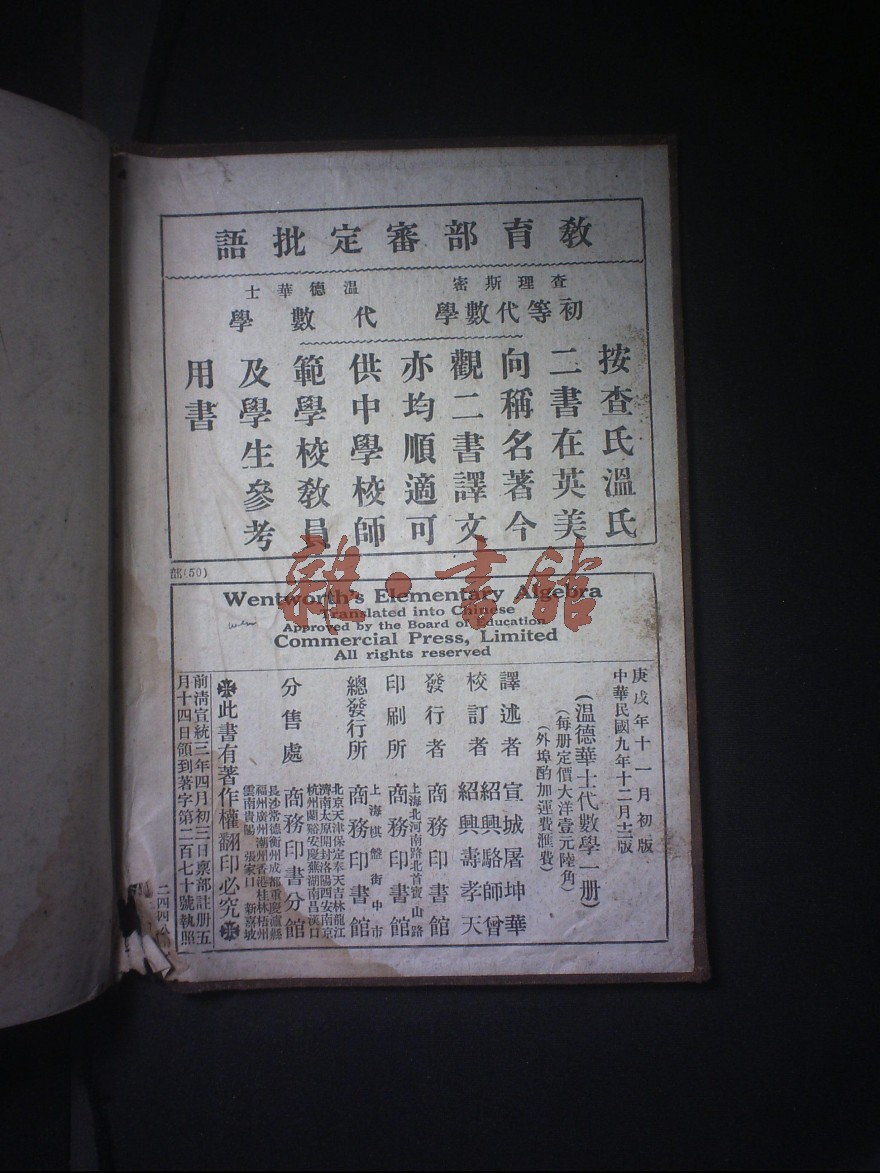 教育部審定批語
查理斯密
初等代數學
溫德華士
代數學
按查氏溫氏
二書在英美
向稱名著今
觀二書譯文
亦均順適可
供中學校師
範學校教員
及學生參考
用書
部(50)
雜·書館
Wentworth's Elementary Algebra
Translated into Chinese
Approved by the Board of Education
Commercial Press, Limited
All rights reserved
庚戌年十一月初版
中華民國九年十二月十二版
(溫德華士代數學一册)
(每册定價大洋壹元陸角)
(外埠酌加運費滙費)
譯述者 宣城屠坤華
校訂者 紹興駱師曾
紹興壽孝天
發行者 商務印書館
印刷所 上海北河南路北首寶山路
商務印書館
總發行所 上海棋盤街中市
商務印書館
分售處 商務印書分館
北京天津保定奉天吉林龍江
濟南太原開封洛陽西安南京
杭州蘭谿安慶蕪湖南昌漢口
長沙常德衡州成都重慶瀘縣
福州廣州潮州香港桂林梧州
雲南貴陽 張家口 新嘉坡
此書有著作權翻印必究
前清宣統三年四月初三日禀部註册五
月十四日領到著字第二百七十號執照
二四四